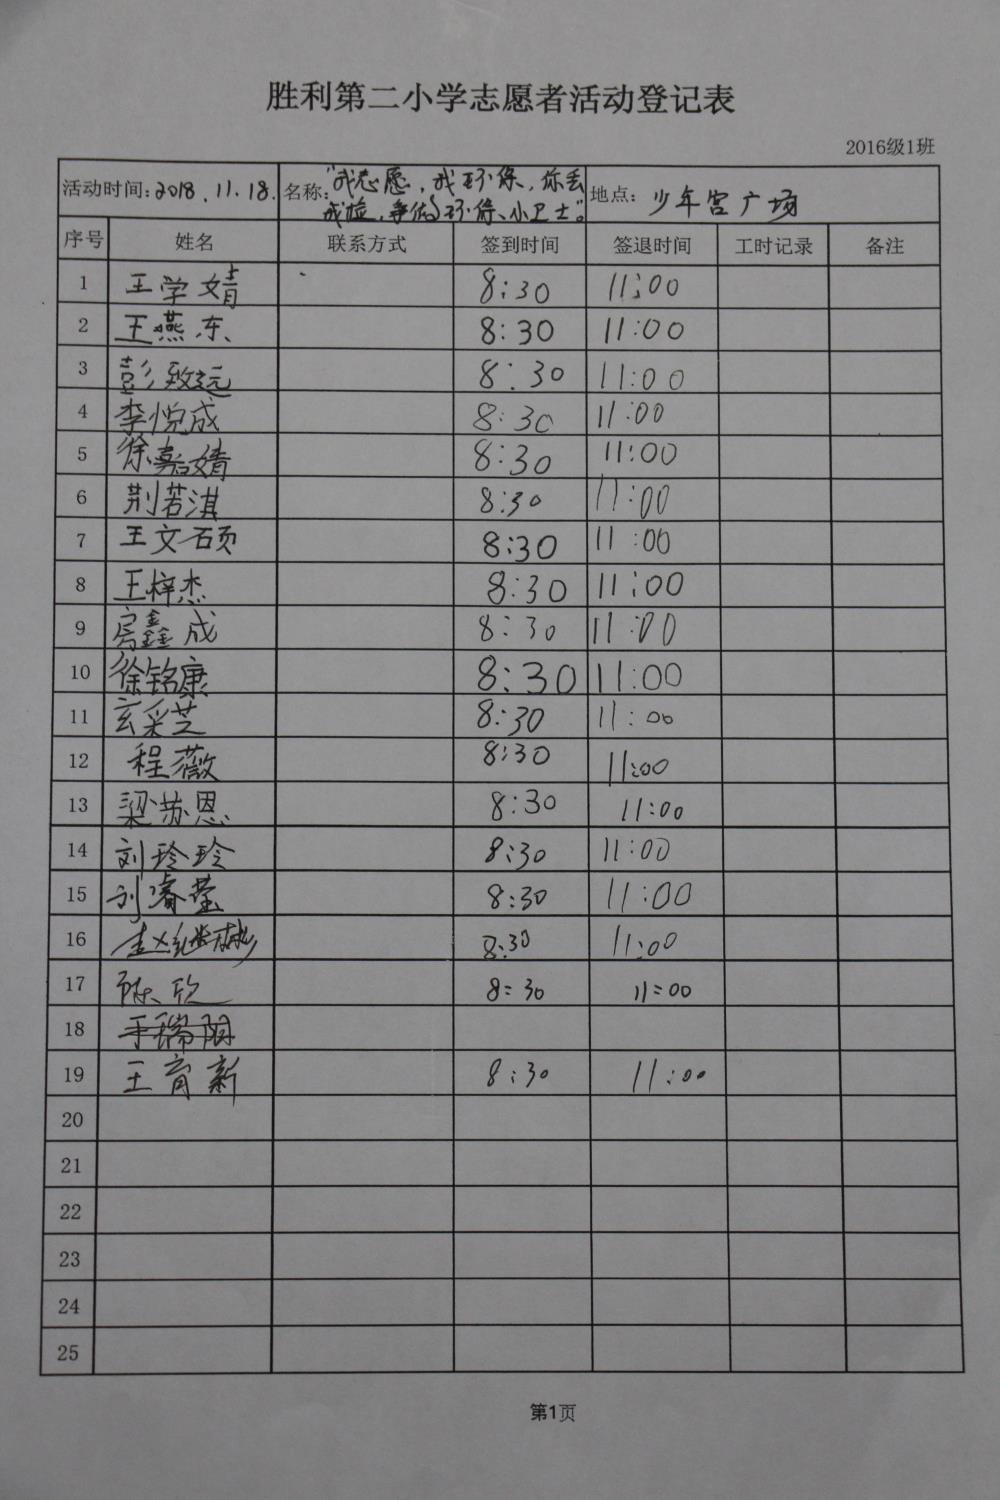 胜利第二小学志愿者活动登记表
2016级1班
活动时间:2018.11.18. 名称:"我志愿,我环保,你丢我捡,争做环保小卫士"。 地点:少年宫广场
序号 姓名 联系方式 签到时间 签退时间 工时记录 备注
1 王学婧 8:30 11:00
2 王燕东 8:30 11:00
3 彭致远 8:30 11:00
4 李悦成 8:30 11:00
5 徐嘉婧 8:30 11:00
6 荆若淇 8:30 11:00
7 王文硕 8:30 11:00
8 王梓杰 8:30 11:00
9 房鑫成 8:30 11:00
10 徐铭康 8:30 11:00
11 玄采芝 8:30 11:00
12 程薇 8:30 11:00
13 梁苏恩 8:30 11:00
14 刘玲玲 8:30 11:00
15 刘睿莹 8:30 11:00
16 8:30 11:00
17 陈欣 8:30 11:00
18
19 王育新 8:30 11:00
20
21
22
23
24
25
第1页